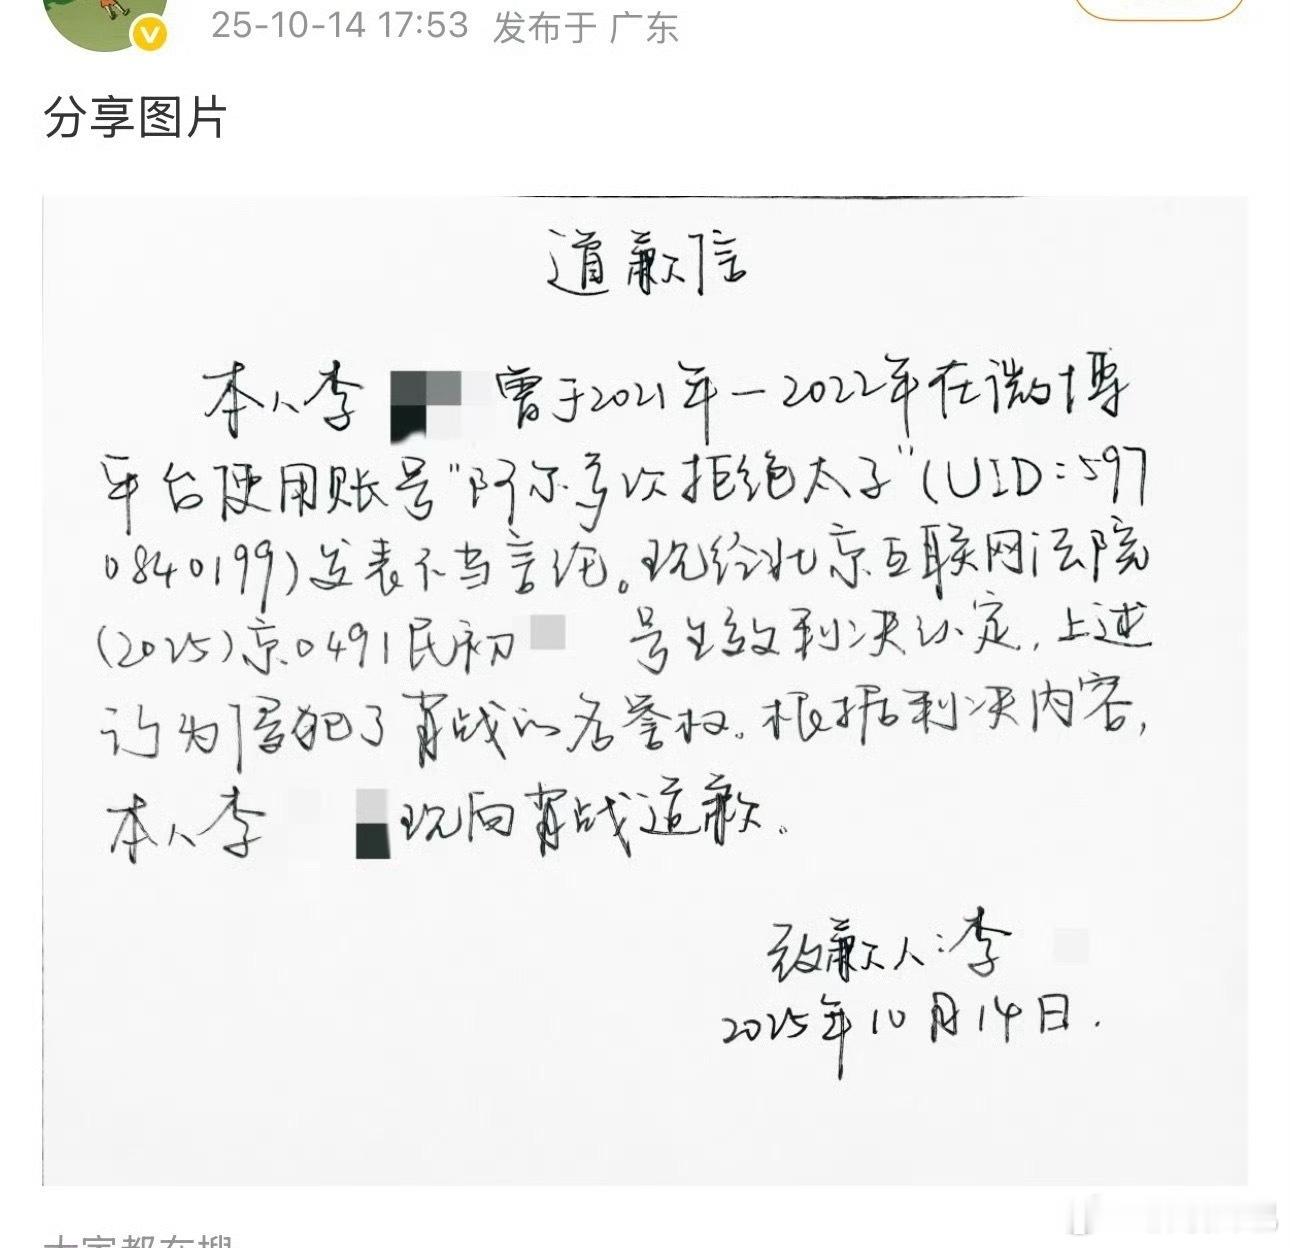 25-10-14 17:53 发布于 广东
分享图片
道歉信
本人李 曾于2021年-2022年在微博
平台使用账号"阿尔多次拒绝太子"(UID:597
0840199)发表不当言论。现经北京互联网法院
(2025)京0491民初 号生效判决认定,上述
行为侵犯了肖战的名誉权。根据判决内容,
本人李 现向肖战道歉。
致歉人:李
2025年10月14日.
大家都在搜